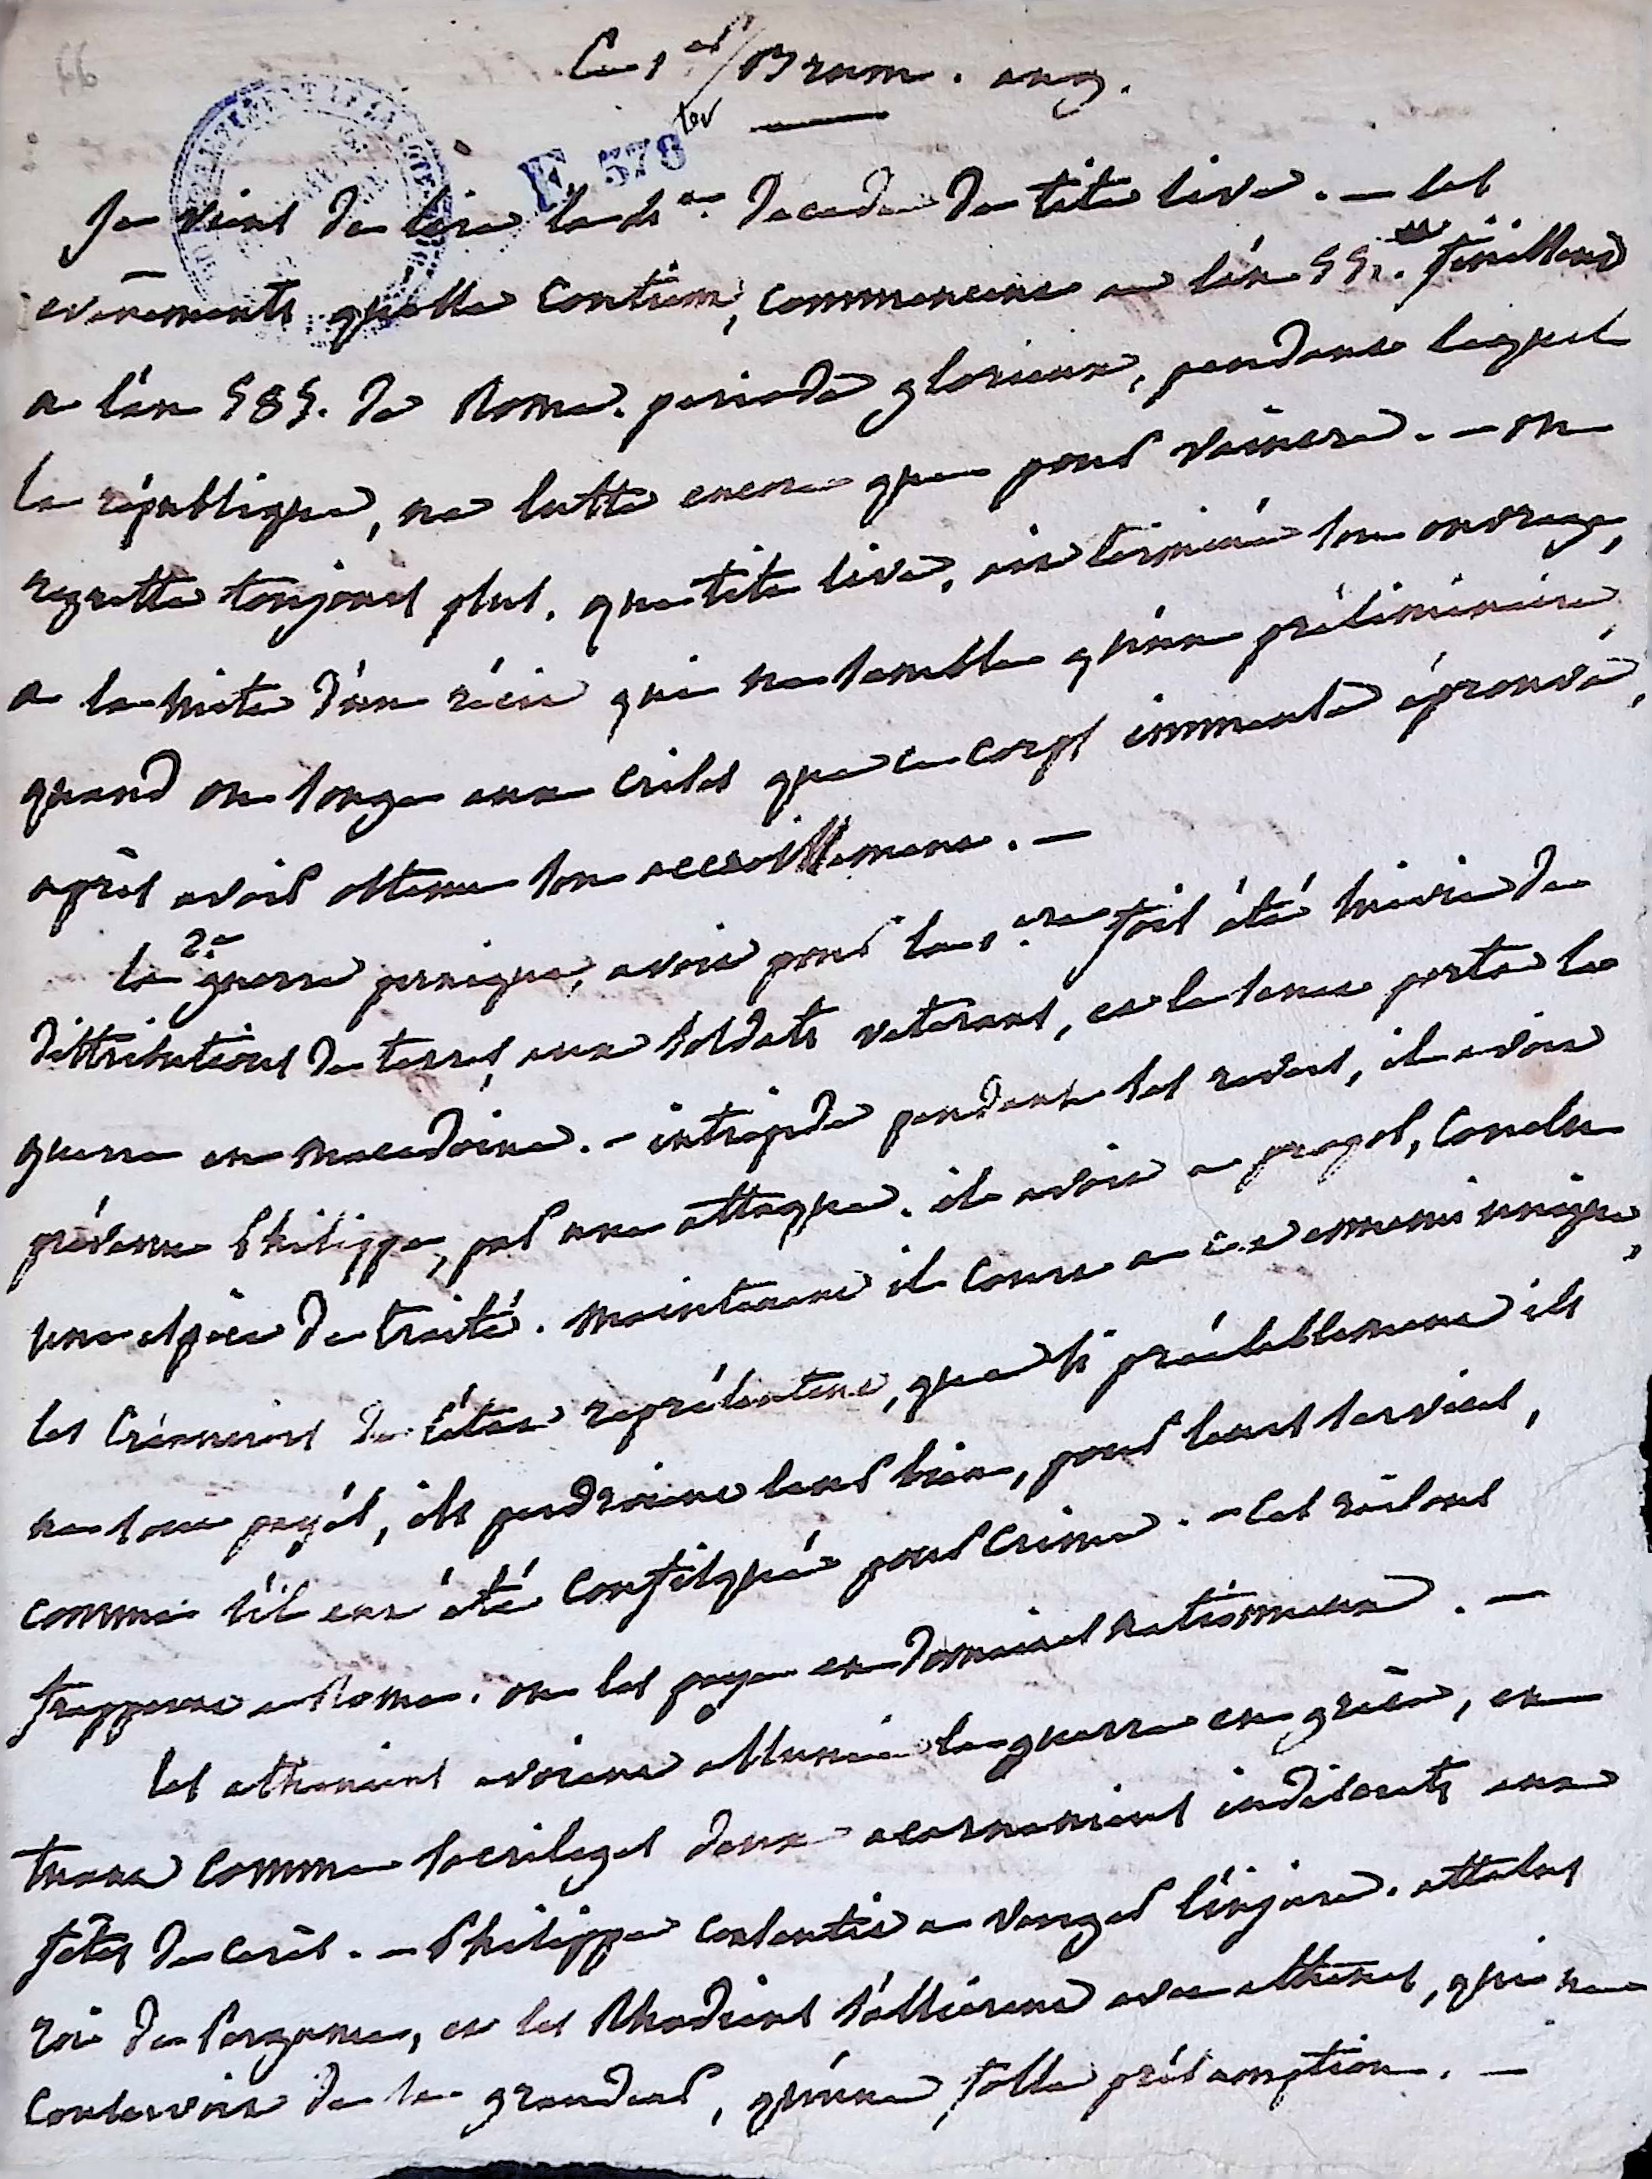 66
Ce 1er Brum. an 9.
E 378 ter
Je viens de lire la 4e. decade de tite live. — les
evenements quelle contient, commencent a l'an 551. finissent
a l'an 585. de Rome. periode glorieuse, pendant laquel
la république, ne lutte encore que pour vaincre. — on
regrette toujours plus, que tite live, ait terminé son ouvrage,
a la suite d'un récit qui ne semble qu'un préliminaire,
quand on songe aux crises que ce corps immense a éprouvé,
après avoir obtenu son accroissement. —
la 2e. guerre punique, avoit pour la 1ere fois été suivie de
distributions de terres, aux soldats veterans, et le senat porta la
guerre en macedoine. — intrépide pendant ses revers, il avoit
prévenu Philippe, par une attaque. il avoit a propos, conclu
une espèce de traité. maintenant il court a cet ennemi unique,
les créanciers de l'état representent, que si préalablement ils
ne sont payés, ils perdroient leur bien, pour leurs services,
comme s'il eut été confisqué pour crime. — ces raisons
frapperent a Rome. on les paya en domaines nationaux. —
les atheniens avoient allumé la guerre en grèce, en
tuant comme sacrileges deux acarnaniens indiscrets aux
fêtes de cerès. — Philippe consentit a venger l'injure. attalus
roi de Pergame, et les Rhodiens s'allierent avec athenes, qui ne
conservoit de sa grandeur, qu'une folle présomption. —